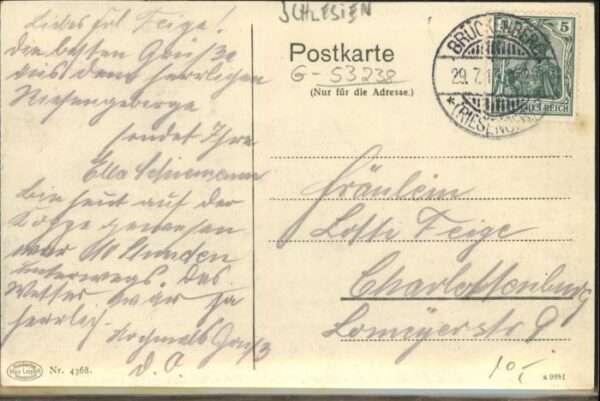 SCHLESIEN
Liebes Frl Feige!
Die besten Grüße
aus dem herrlichen
Riesengebirge
sendet Ihre
Ella Schiemann
bin heut auf der
Koppe gewesen
war 10 Stunden
unterwegs. Das
Wetter war ja
herrlich.
Nochmals Gruß
d. O.
Nr. 4368.
Postkarte
G-53238
(Nur für die Adresse.)
BRÜCKENBERG
29.7.1
(RIESENGEB.
5
Fräulein
Lotti Feige
Charlottenburg
Lomeyerstr 9
10,-
a 9981